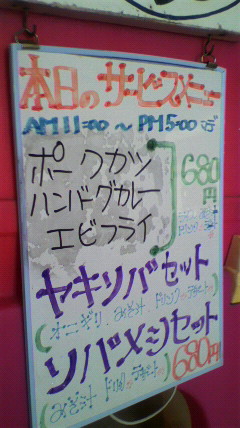 本日のサービスメニュー
AM11:00 ～ PM5:00まで
ポークカツ
ハンバーグカレー
エビフライ
680円
ヤキソバセット
(オニギリ・みそ汁・ドリンク・デザート)
ソバメシセット
(みそ汁・ドリンク・デザート) 680円